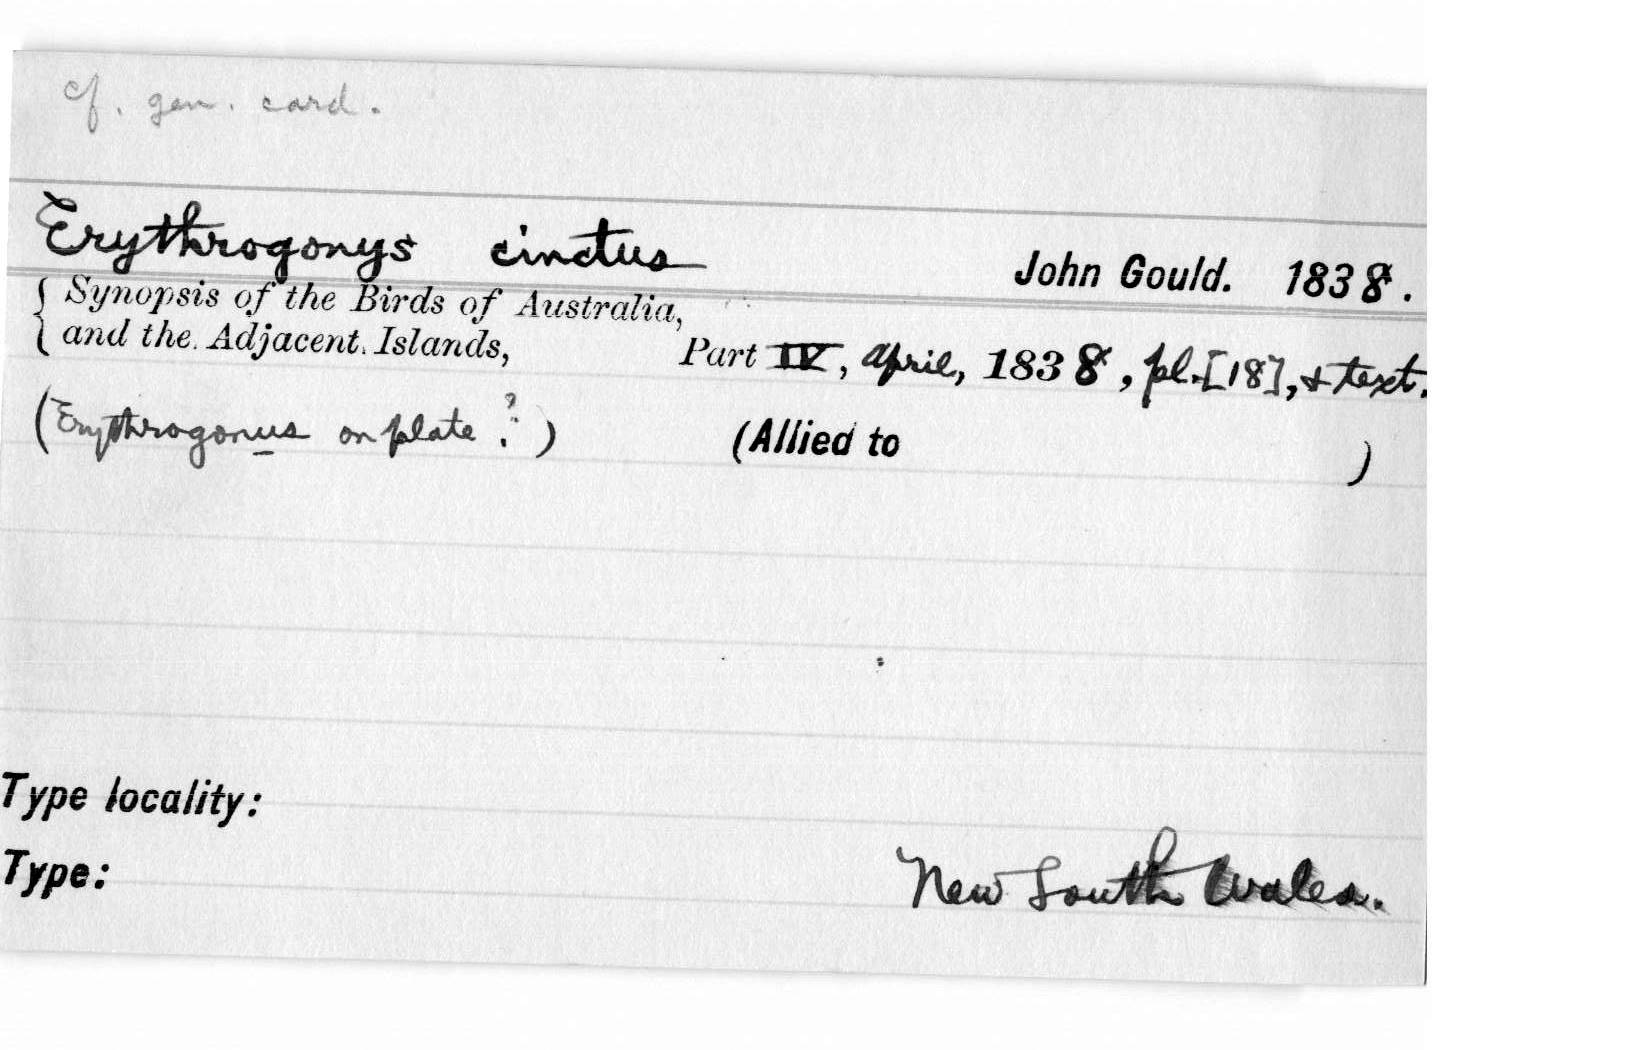 cf. gen. card.
Erythrogonys cinctus John Gould. 1838.
{ Synopsis of the Birds of Australia,
{ and the Adjacent Islands, Part IV, April, 1838, pl. [18], & text.
(Erythrogonus on plate ?.) (Allied to )
Type locality:
Type: New South Wales.